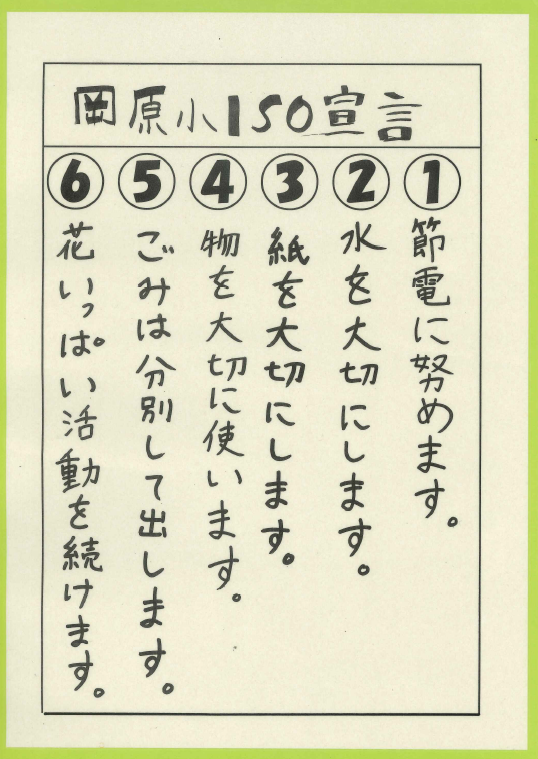 岡原小ISO宣言
1 節電に努めます。
2 水を大切にします。
3 紙を大切にします。
4 物を大切に使います。
5 ごみは分別して出します。
6 花いっぱい活動を続けます。